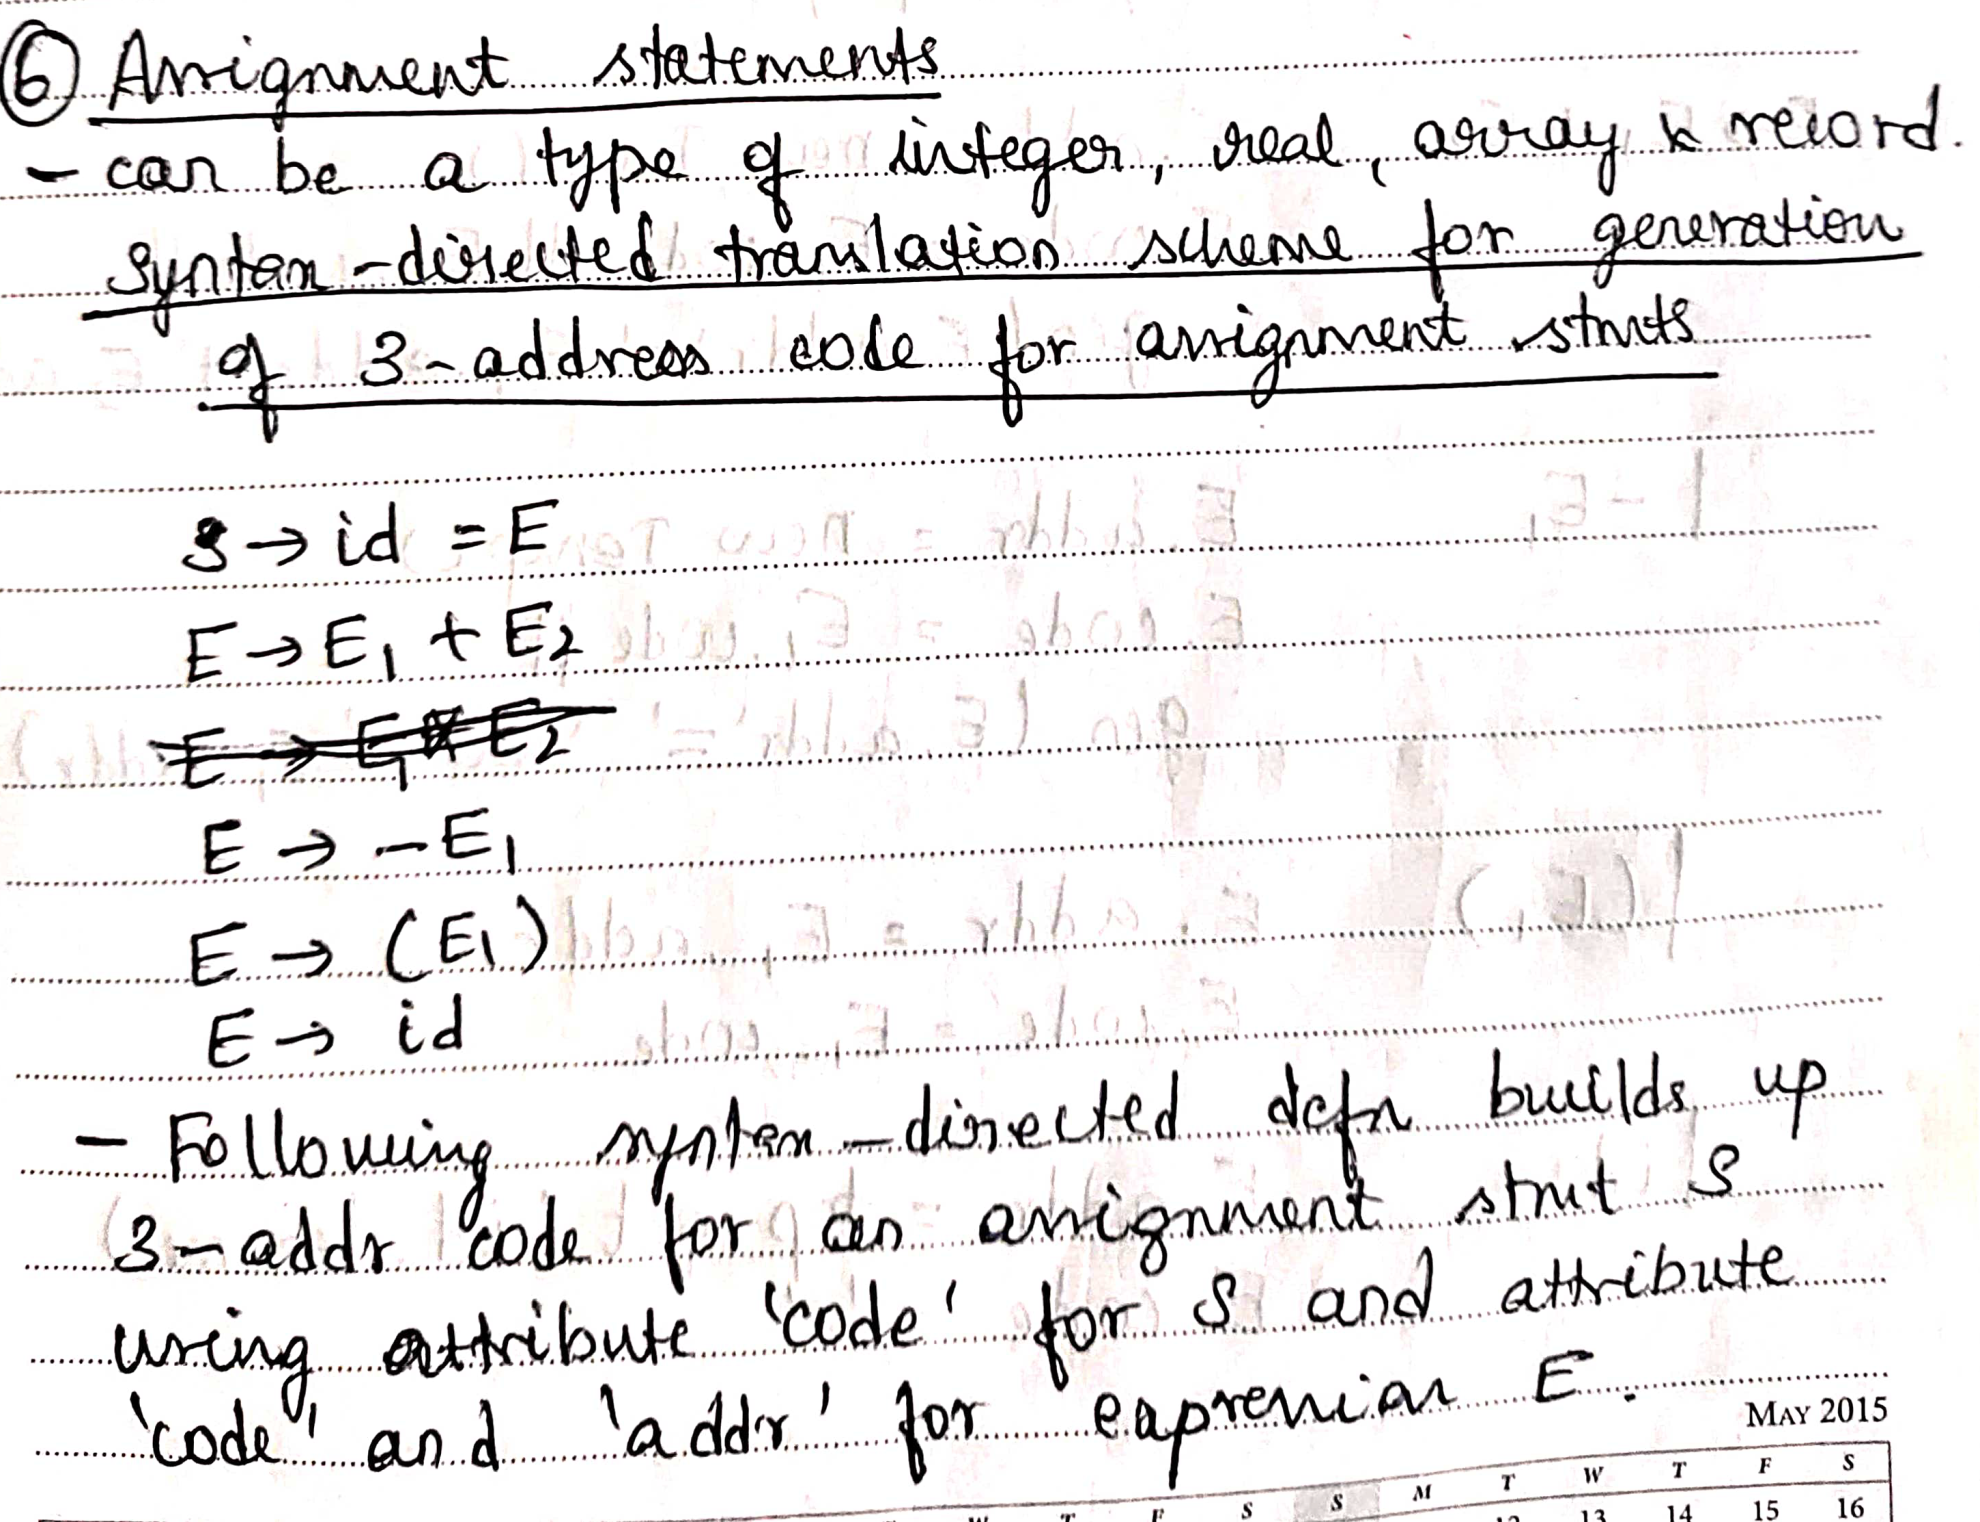 6 Assignment statements
- can be a type of integer, real, array & record.
Syntax-directed translation scheme for generation
of 3-address code for assignment stmts
S → id = E
E → E1 + E2
E → E1 * E2
E → -E1
E → (E1)
E → id
- Following syntax-directed defn builds up
3-addr code for an assignment stmt S
using attribute 'code' for S and attribute
'code' and 'addr' for expression E.
MAY 2015
T W T F S
S S M T W T F S
13 14 15 16